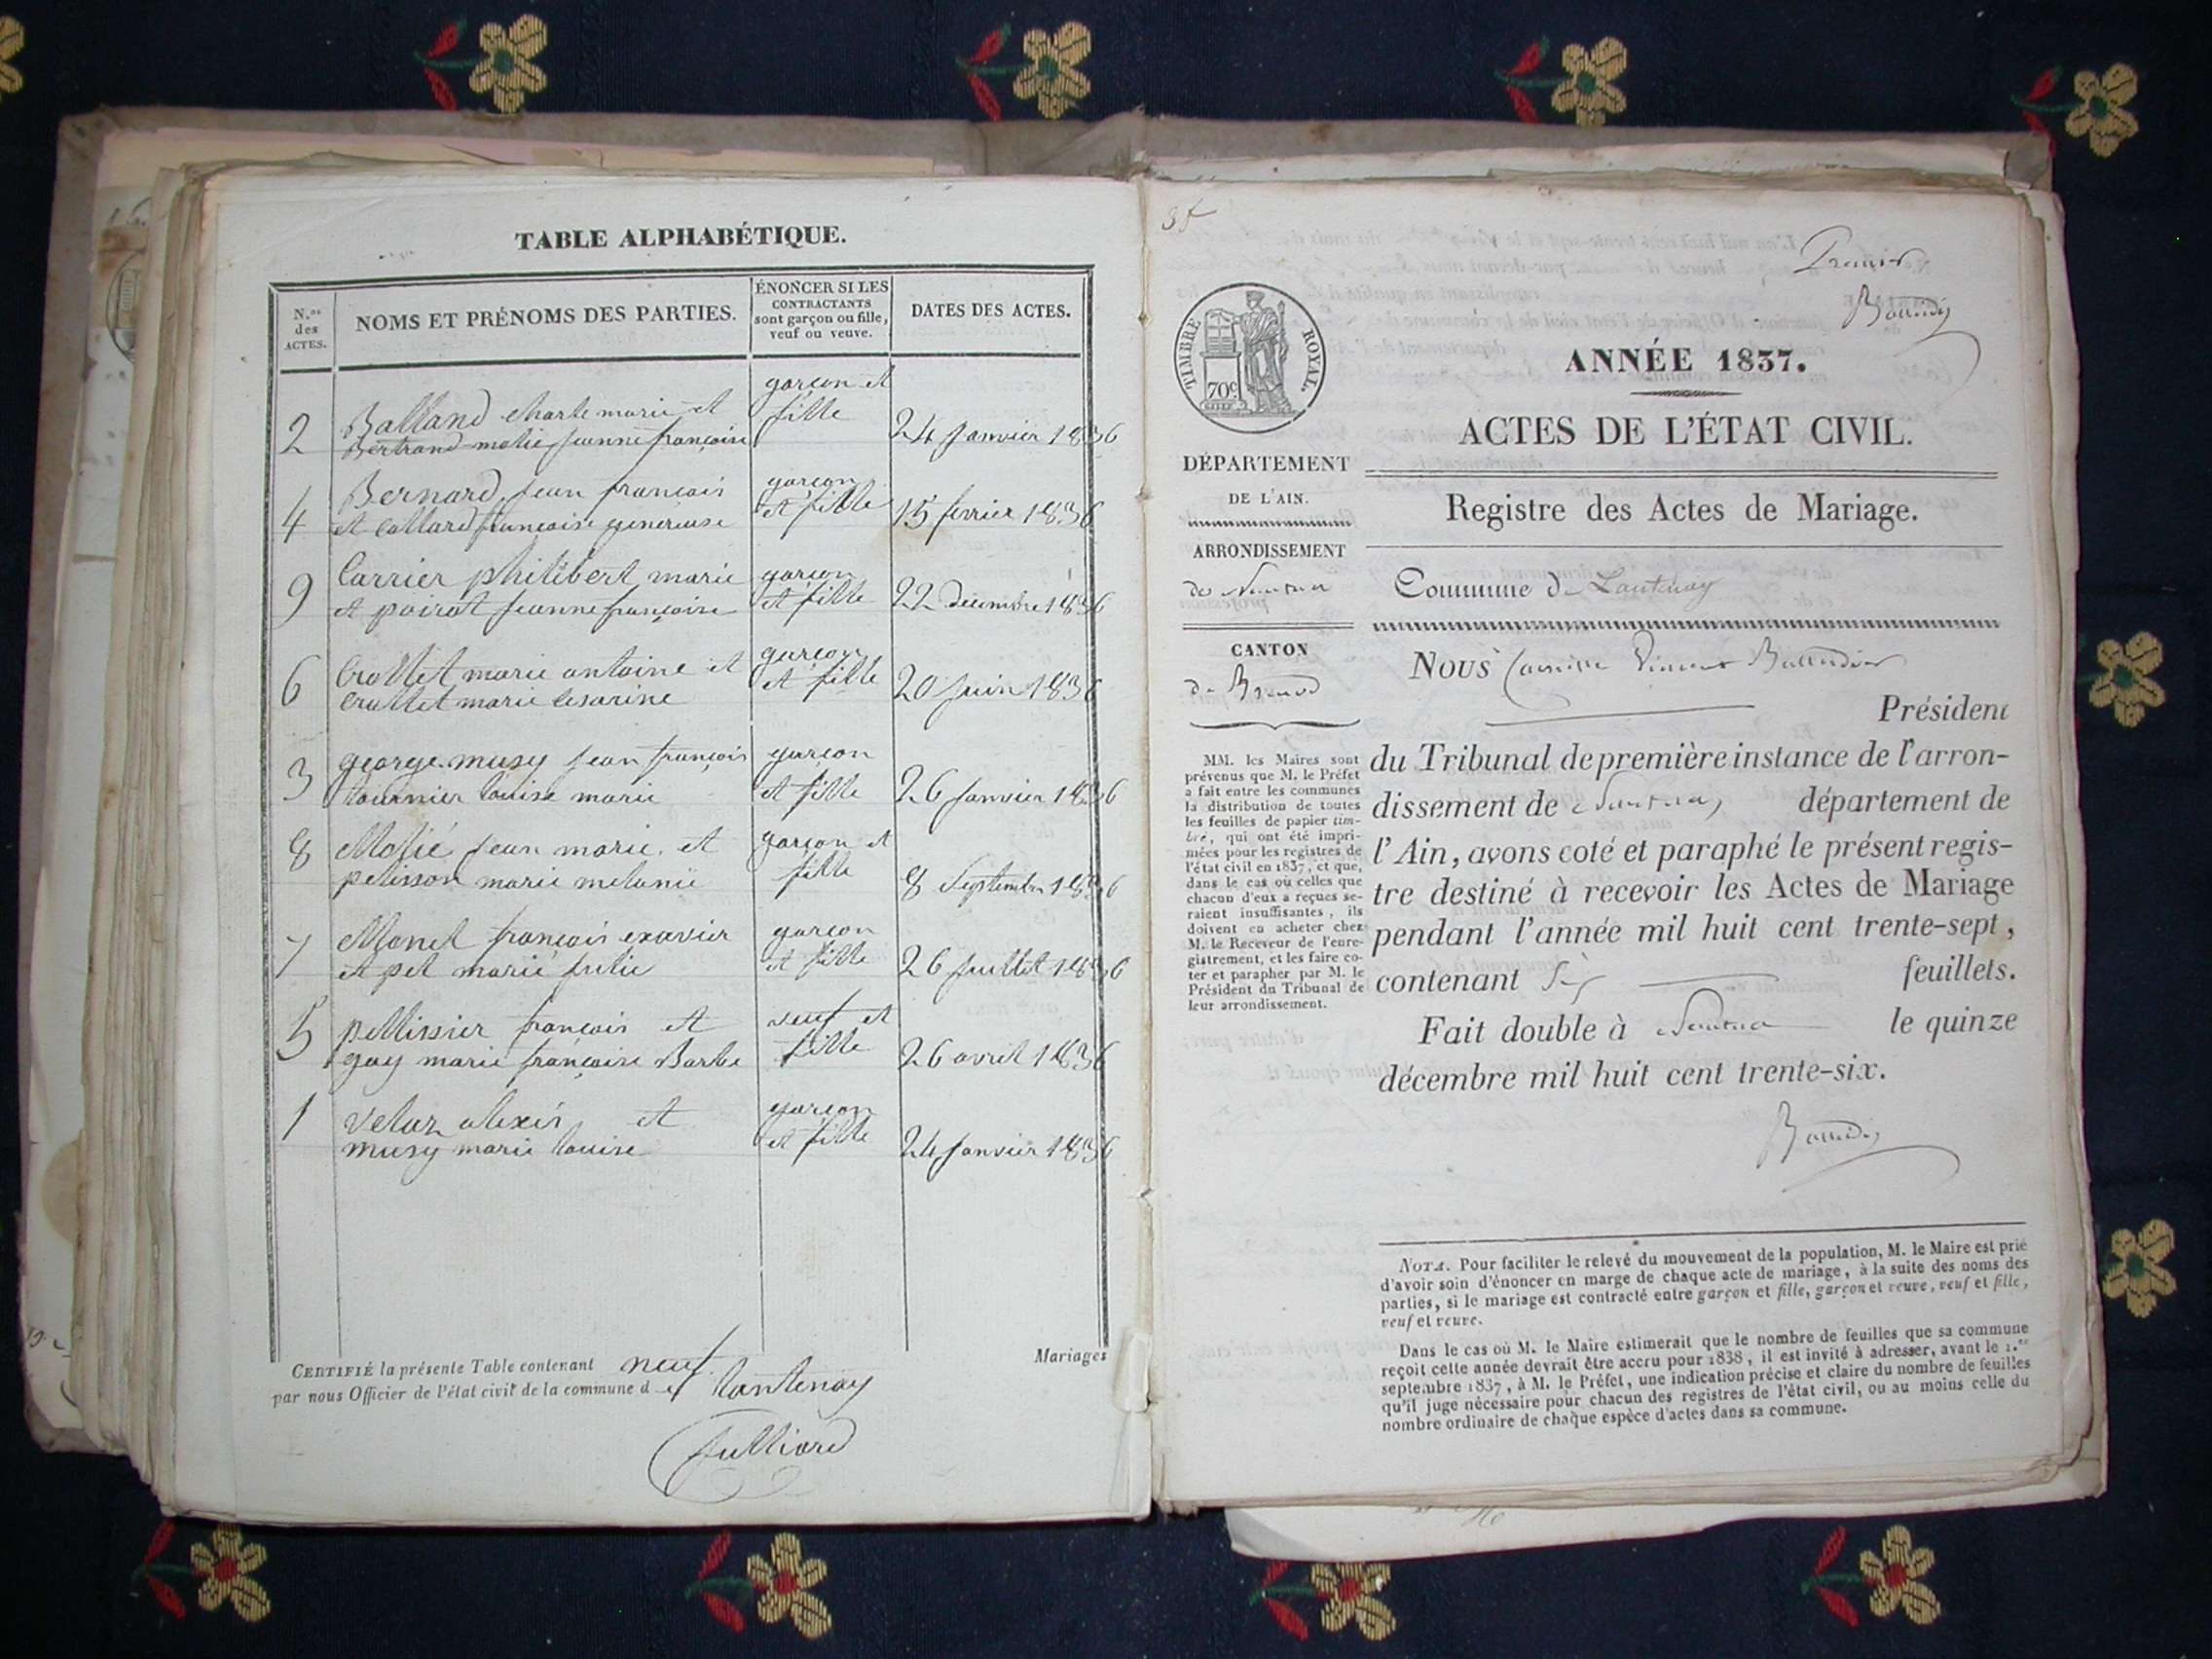 TABLE ALPHABÉTIQUE.
N.os
des
ACTES.
NOMS ET PRÉNOMS DES PARTIES.
ÉNONCER SI LES
CONTRACTANTS
sont garçon ou fille,
veuf ou veuve.
DATES DES ACTES.
2 Balland charle marie et garçon et fille
Bertrand molie jeanne françoise 24 janvier 1836
4 Bernard jean françois garçon
et Collard françoise genereuse et fille 15 fevrier 1836
9 Carrier philibert marie garçon
et poirot jeanne françoise et fille 22 decembre 1836
6 Crollet marie antoine et garçon
Crollet marie Cesarine et fille 20 juin 1836
3 george-musy jean françois garçon
tournier louise marie et fille 26 janvier 1836
8 Molié jean marie et garçon et
pelisson marie melanie fille 8 Septembre 1836
7 Monet françois exavier garçon
et pet marie julie et fille 26 juillet 1836
5 pellissier françois et veuf et
gay marie françoise Barbe fille 26 avril 1836
1 Velaz alexis et garçon
musy marie louise et fille 24 janvier 1836
CERTIFIÉ la présente Table contenant neuf Mariages
par nous Officier de l'état civil de la commune de Lantenay
Julliard
Premier
TIMBRE ROYAL.
70c
ANNÉE 1837.
ACTES DE L'ÉTAT CIVIL.
DÉPARTEMENT
DE L'AIN.
ARRONDISSEMENT
de Nantua
CANTON
de Brenod
MM. les Maires sont
prévenus que M. le Préfet
a fait entre les communes
la distribution de toutes
les feuilles de papier tim-
bré, qui ont été impri-
mées pour les registres de
l'état civil en 1837, et que,
dans le cas où celles que
chacun d'eux a reçues se-
raient insuffisantes, ils
doivent en acheter chez
M. le Receveur de l'enre-
gistrement, et les faire co-
ter et parapher par M. le
Président du Tribunal de
leur arrondissement.
Registre des Actes de Mariage.
Commune de Lantenay
NOUS Vincent
Président
du Tribunal de première instance de l'arron-
dissement de Nantua, département de
l'Ain, avons coté et paraphé le présent regis-
tre destiné à recevoir les Actes de Mariage
pendant l'année mil huit cent trente-sept,
contenant feuillets.
Fait double à Nantua le quinze
décembre mil huit cent trente-six.
NOTA. Pour faciliter le relevé du mouvement de la population, M. le Maire est prié
d'avoir soin d'énoncer en marge de chaque acte de mariage, à la suite des noms des
parties, si le mariage est contracté entre garçon et fille, garçon et veuve, veuf et fille,
veuf et veuve.
Dans le cas où M. le Maire estimerait que le nombre de feuilles que sa commune
reçoit cette année devrait être accru pour 1838, il est invité à adresser, avant le 1.er
septembre 1837, à M. le Préfet, une indication précise et claire du nombre de feuilles
qu'il juge nécessaire pour chacun des registres de l'état civil, ou au moins celle du
nombre ordinaire de chaque espèce d'actes dans sa commune.